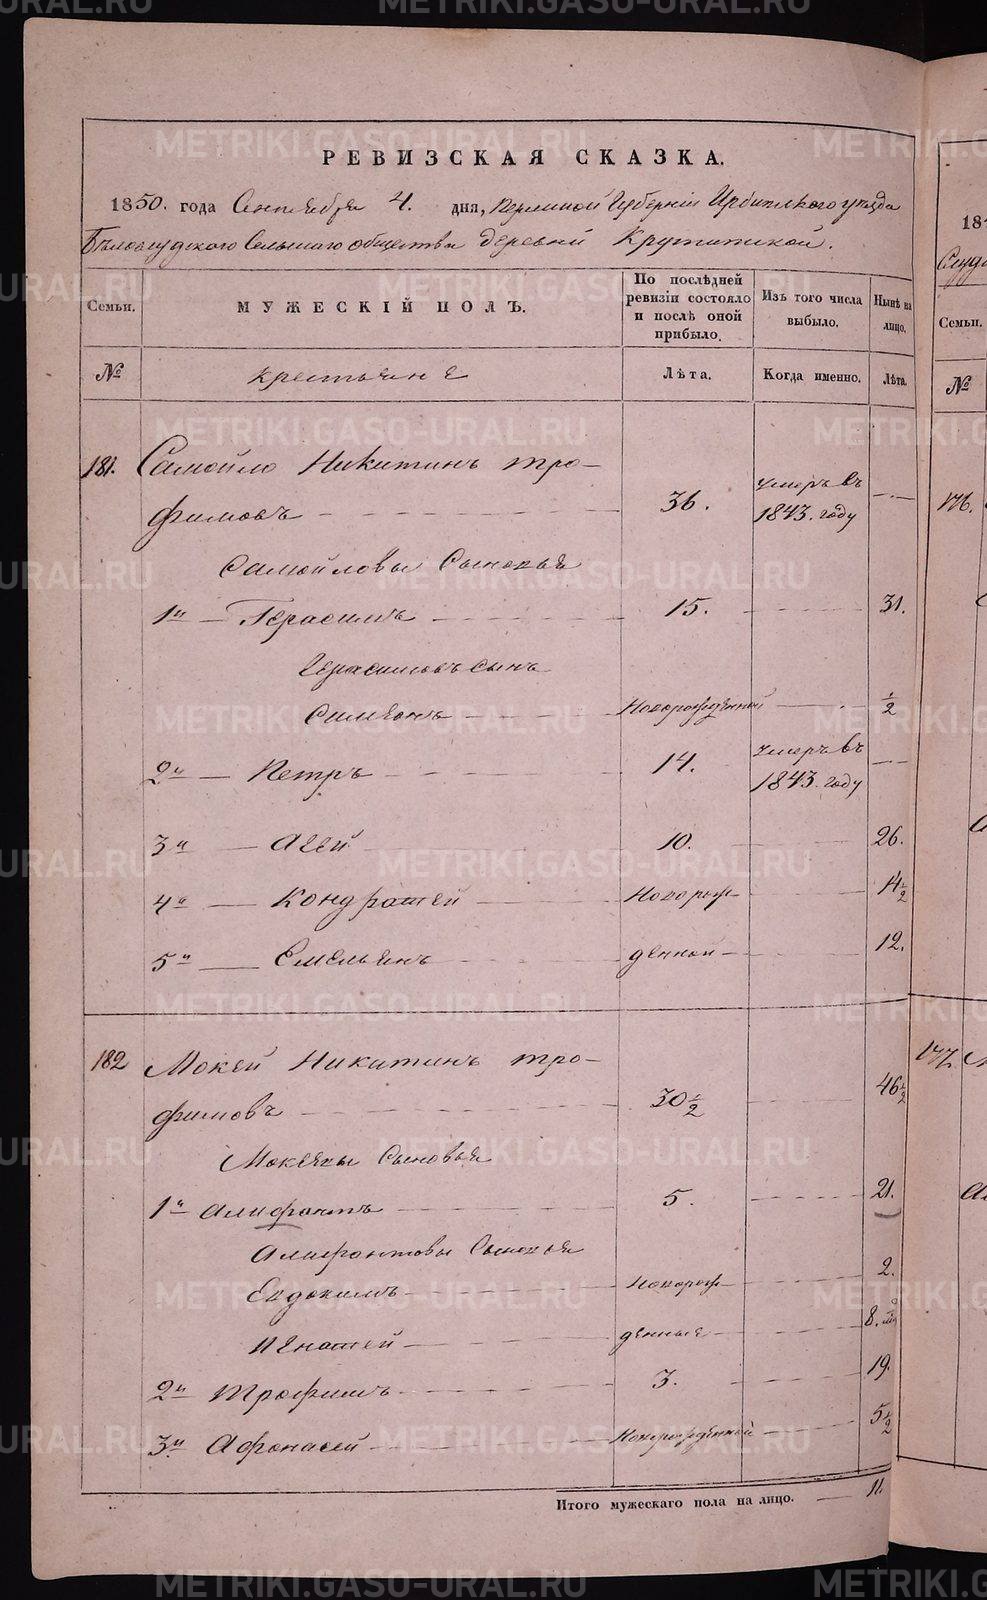 РЕВИЗСКАЯ СКАЗКА.
1850. года Сентября 4. дня, Пермской Губерніи Ирбитскаго уезда
Бѣлослудского Сельскаго общества деревни Крутитской.
Семьи. МУЖЕСКІЙ ПОЛЪ. По послѣдней ревизіи состояло и послѣ оной прибыло. Изъ того числа выбыло. Нынѣ на лицо.
№ крестьяне Лѣта. Когда именно. Лѣта.
181. Самойло Никитинъ Тро-
фимовъ 36. умеръ въ 1843. году
Самойловы Сыновья
1й Герасимъ 15. 31.
Герасимовъ сынъ
Симеонъ Новорожденной ½
2й Петръ 14. умеръ въ 1843. году
3й Агей 10. 26.
4й Кондратей Новорож- 14½
5й Емельянъ денной 12.
182 Мокей Никитинъ Тро-
фимовъ 30½ 46½
Мокеевы Сыновья
1й Алифантъ 5. 21.
Алифонтовы Сыновья
Евдокимъ Новорож- 2.
Игнатей денные 8.
2й Трофимъ 3. 19.
3й Афонасей Новорожденной 5½
Итого мужескаго пола на лицо. 11.
184
Сслуд
Семьи.
№
176.
177.
METRIKI.GASO-URAL.RU